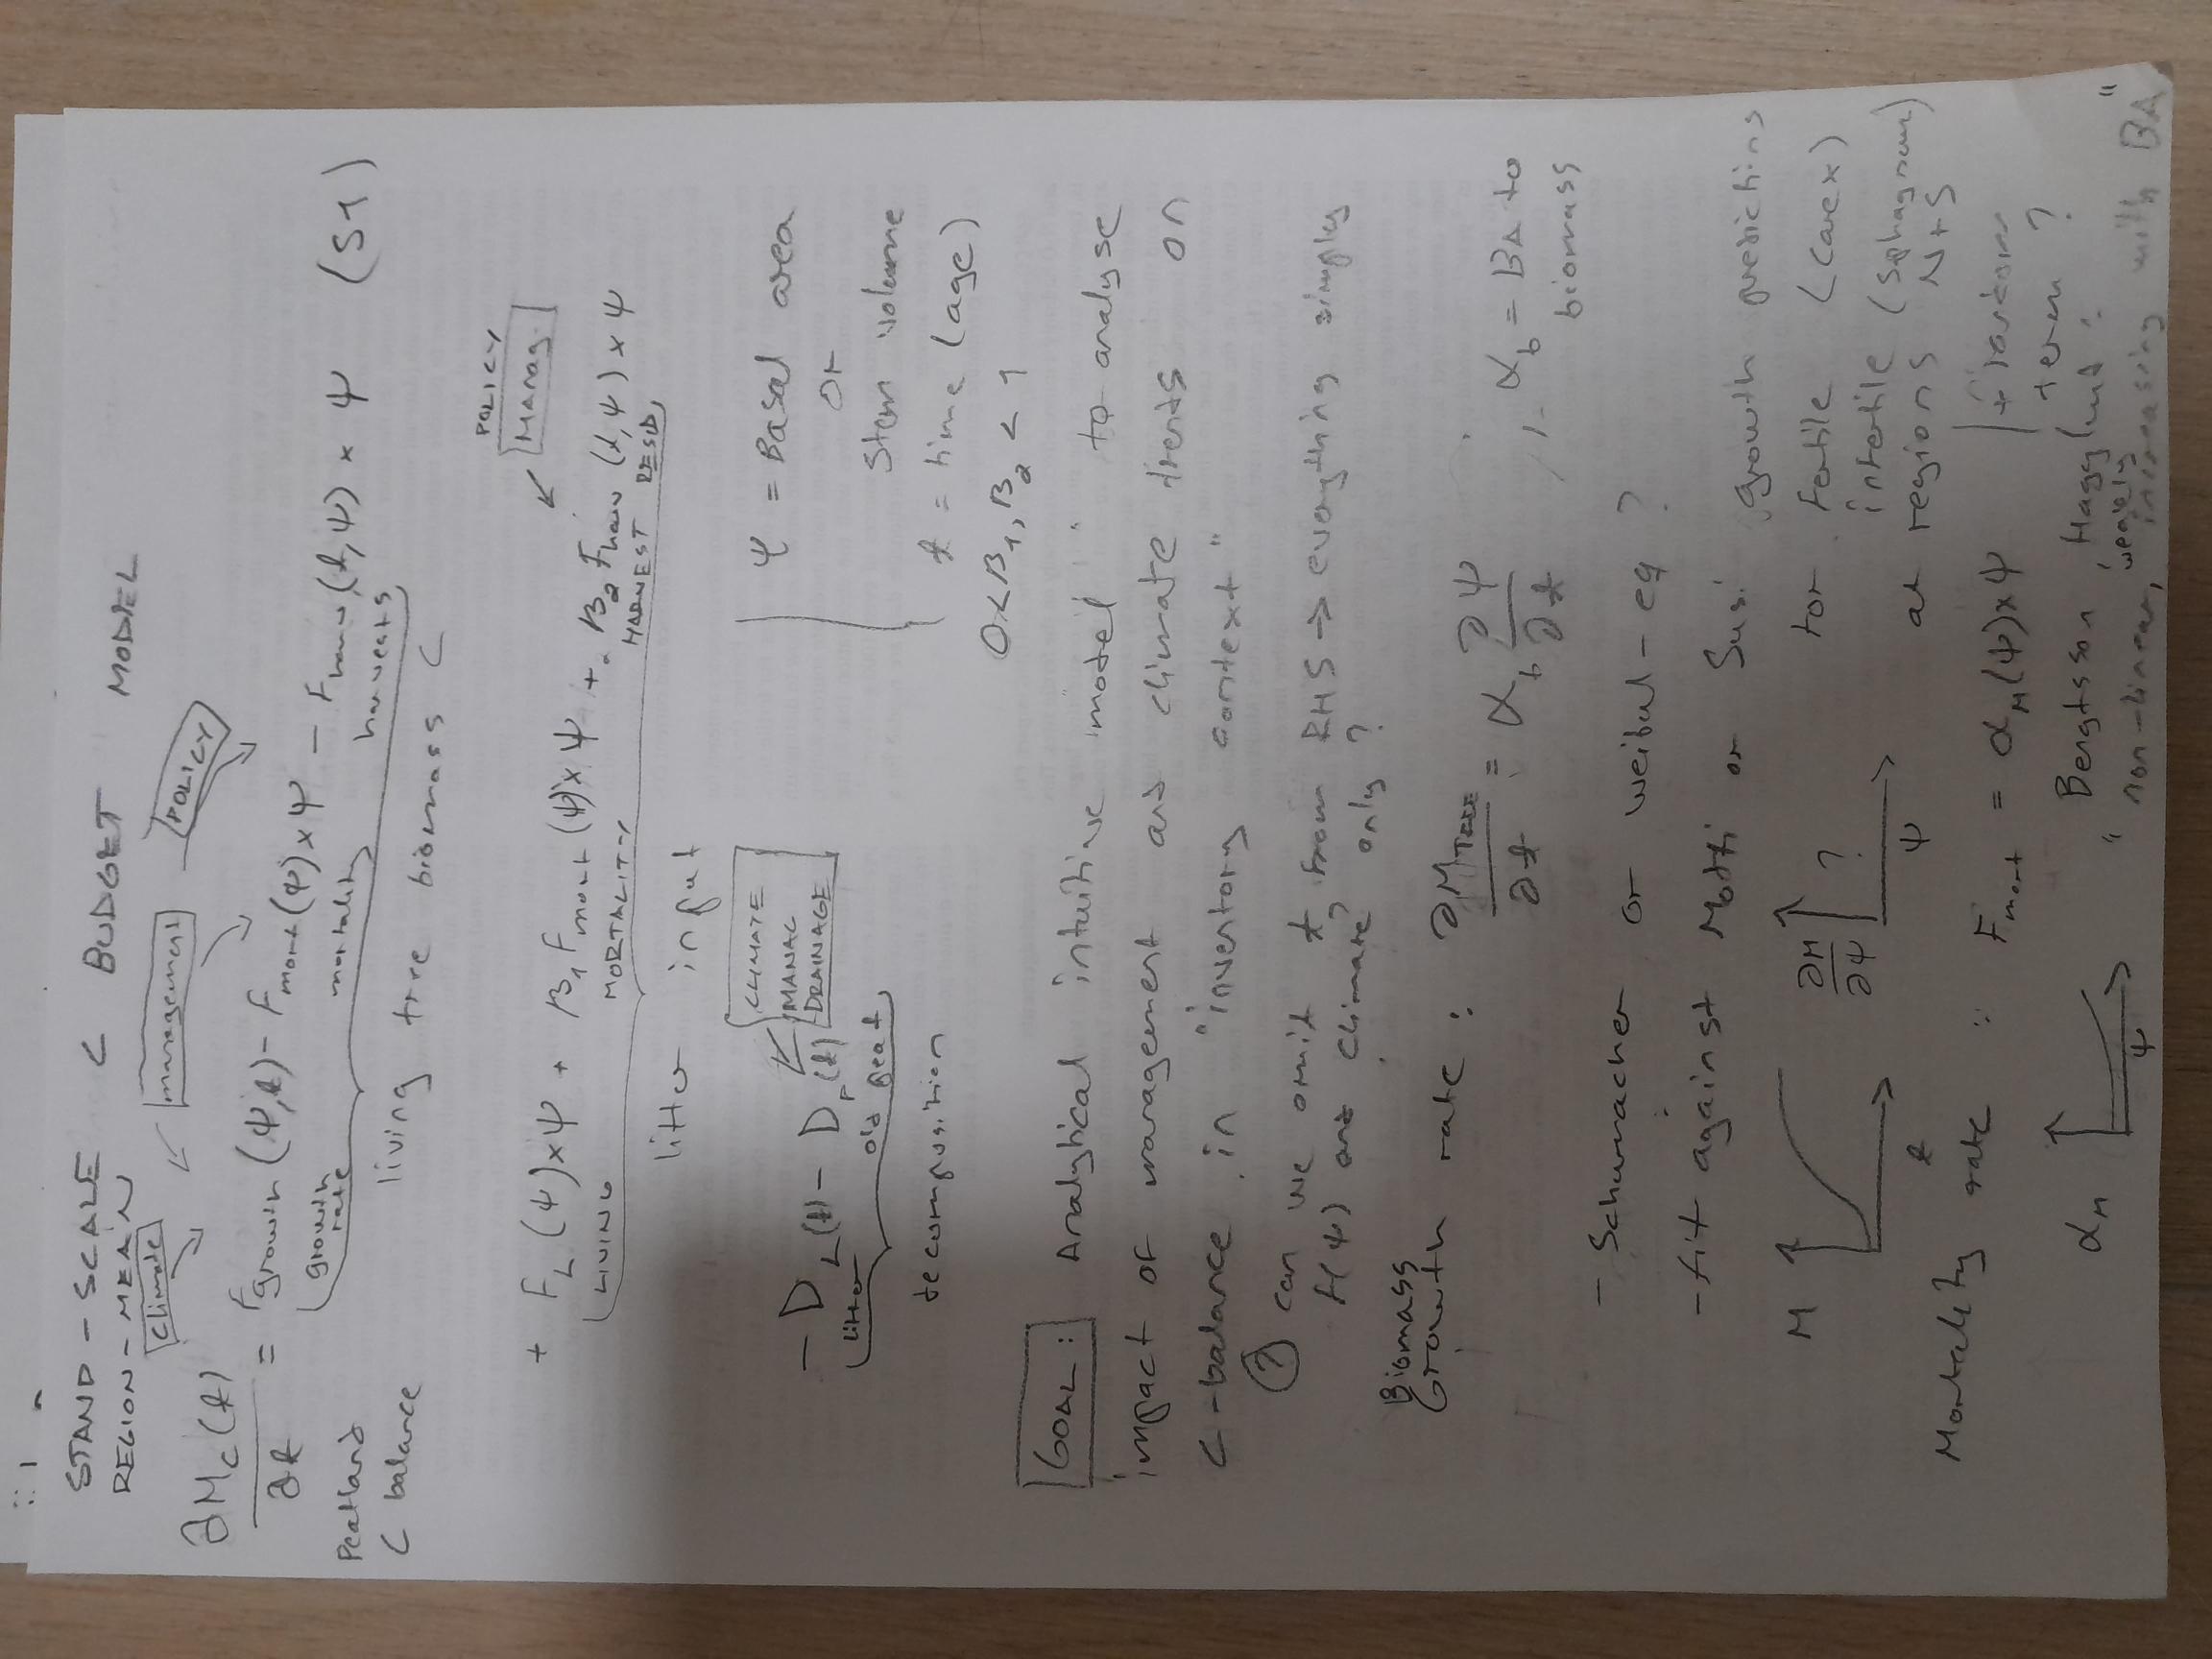 STAND-SCALE C BUDGET MODEL
REGION-MEAN
Climate management POLICY
∂M_C(t)/∂t = F_growth(Ψ,t) - F_mort(Ψ) x Ψ - F_harv(t,Ψ) x Ψ (S1)
growth rate mortality harvests
Peatland
C balance
living tree biomass C
POLICY
Manag.
+ F_L(Ψ)xΨ + B_1 F_mort(Ψ)xΨ + B_2 F_harv(t,Ψ) x Ψ
LIVING MORTALITY HARVEST RESID,
litter input
CLIMATE
MANAG
DRAINAGE
- D_L(t) - D_P(t)
litter old peat
decomposition
Ψ = Basal area
or
Stem volume
t = time (age)
0<B_1, B_2 < 1
GOAL: Analytical intuitive "model" to analyse
impact of management and climate trends on
C-balance in "inventory context"
? can we omit t from RHS -> everything simply
f(Ψ) and climate only?
Biomass
Growth rate: ∂M_TREE/∂t = α_b ∂Ψ/∂t , α_b = BA to
biomass
- Schumacher or weibul-eq ?
- fit against Motti or Susi growth predictions
for fertile (Carex)
infertile (Sphagnum)
at regions N+S
M t
∂M/∂Ψ ? Ψ
Mortality rate : F_mort = α_M(Ψ)xΨ | + random
term ?
α_M Ψ
Bergtsson, Hagglund:
"non-linear, weakly increasing with BA"